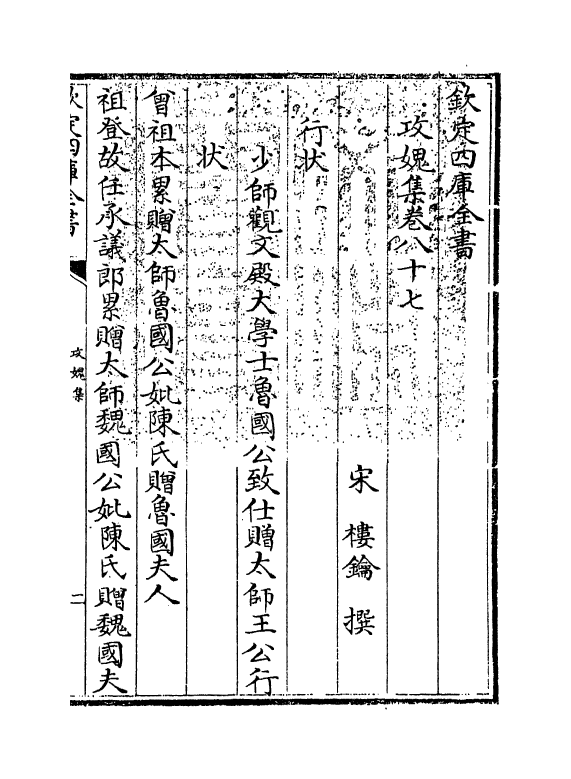 欽定四庫全書
攻媿集巻八十七
宋 樓鑰 撰
行狀
少師觀文殿大學士魯國公致仕贈太師王公行
狀
曾祖本累贈太師魯國公妣陳氏贈魯國夫人
祖登故任承議郎累贈太師魏國公妣陳氏贈魏國夫
欽定四庫全書
攻媿集
二